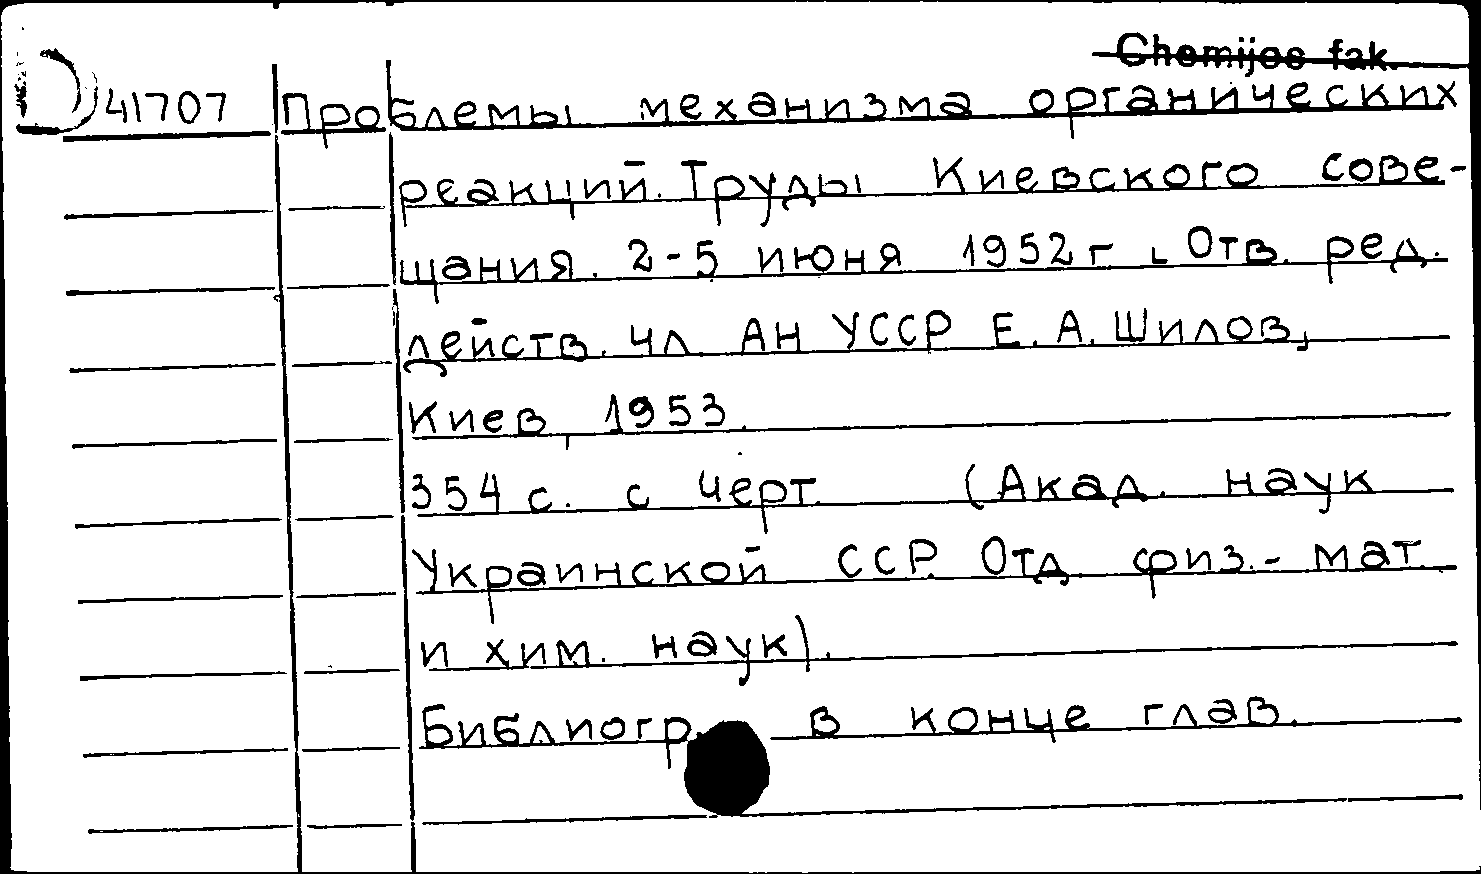 Chemijos fak.
D 41707 Проблемы механизма органических
реакций. Труды Киевского сове-
щания. 2-5 июня 1952 г. Отв. ред.
действ. чл. АН УССР Е. А. Шилов,
Киев, 1953.
354 с. с черт. (Акад. наук
Украинской ССР. Отд. физ.-мат.
и хим. наук).
Библиогр. в конце глав.